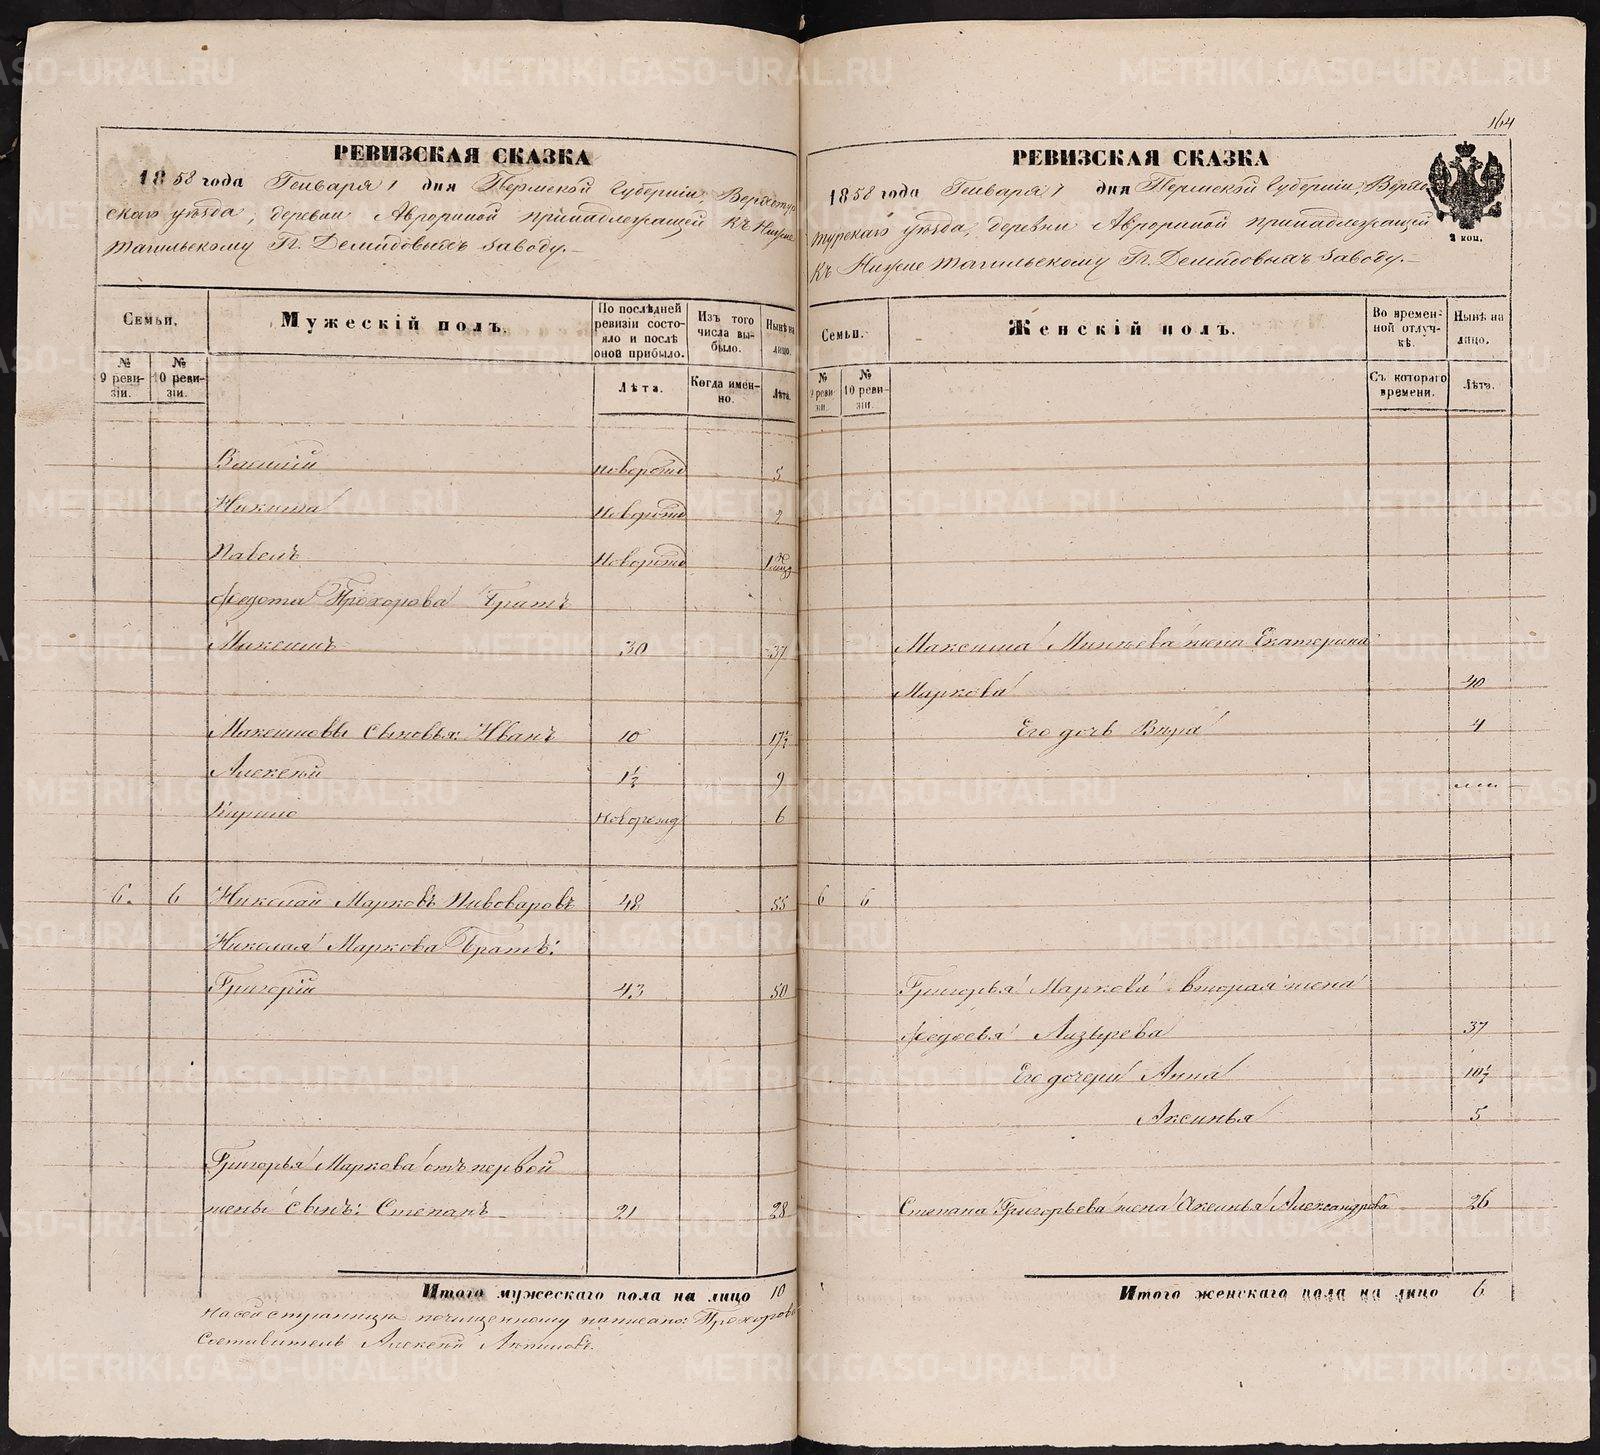 164
РЕВИЗСКАЯ СКАЗКА
1858 года Генваря 1 дня Пермской Губерніи, Верхоту
скаго уѣзда, деревни Аврориной принадлежащей къ Нижне
тагильскому Гг. Демидовыхъ Заводу.
Семьи.
Мужескій полъ.
По послѣдней ревизіи состояло и послѣ оной прибыло.
Изъ того числа выбыло.
Нынѣ на лицо.
№ 9 ревизіи.
№ 10 ревизіи.
Лѣта.
Когда именно.
Лѣта.
Василій новорожд 5
Никита новорожд 2
Павелъ новорожд
Федота Прохорова братъ
Максимъ 30 37
Максимовы сыновья: Иванъ 10 17½
Алексѣй 1½ 9
новорожд 6
6. 6 Николай Марковъ Пивоваровъ 48 55
Николая Маркова братъ:
Григорій 43 50
Григорья Маркова отъ первой
жены сынъ: Степанъ 21 28
Итого мужескаго пола на лицо 10
На сей страницѣ почищенному написано: Прохорова
Составитель Алексѣй
РЕВИЗСКАЯ СКАЗКА
2 коп.
1858 года Генваря 1 дня Пермской Губерніи, Верхо
турскаго уѣзда, деревни Аврориной принадлежащей
къ Нижне тагильскому Гг. Демидовыхъ Заводу.
Семьи.
Женскій полъ.
Во временной отлучкѣ.
Нынѣ на лицо.
№ 9 ревизіи.
№ 10 ревизіи.
Съ котораго времени.
Лѣта.
Максима жена Екатерина
Маркова 40
Его дочь Вѣра 4
6 6
Григорья Маркова вторая жена
Федосья 37
Его дочери Анна 10½
Аксинья 5
Степана Григорьева жена Аксинья Александрова 26
Итого женскаго пола на лицо 6
METRIKI.GASO-URAL.RU